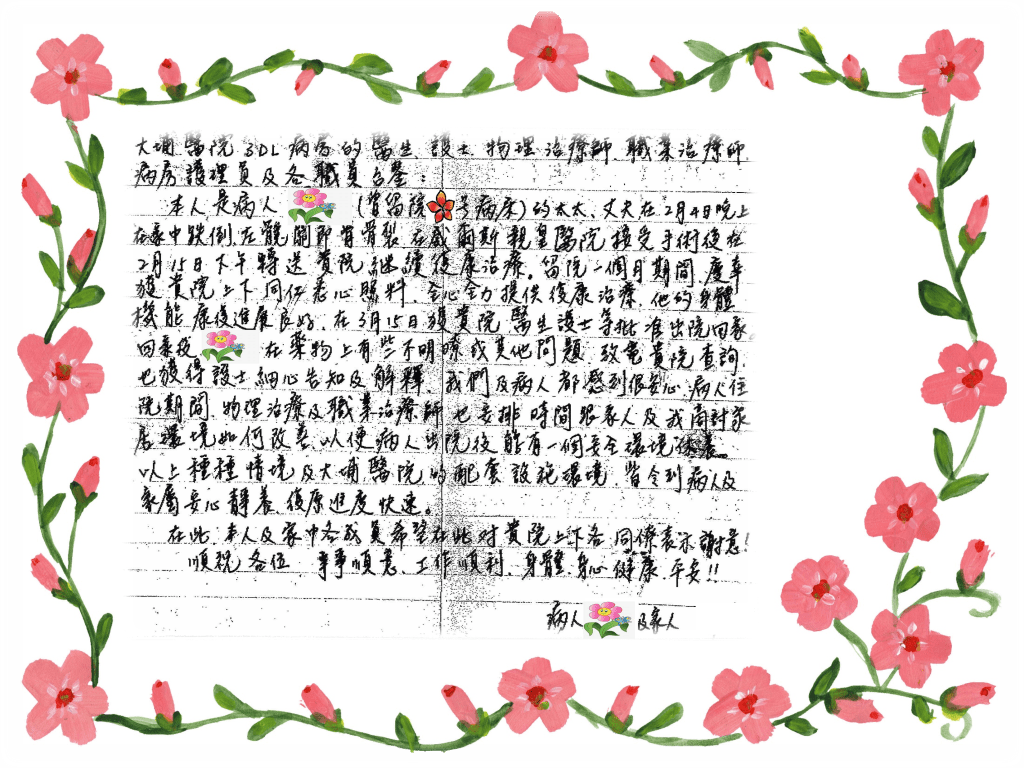 大埔醫院 3DL 病房的醫生、護士、物理治療師、職業治療師、
病房護理員及各職員台鑒：
本人是病人 (曾留院 号病床)的太太、丈夫在2月4日晚上
在家中跌倒,左髖關節骨骨裂,在威爾斯親皇醫院接受手術後在
2月15日下午轉送貴院継續復康治療。留院一個月期間,慶幸
獲貴院上下同仁悉心照料,全心全力提供復康治療,他的身體
機能康復進展良好,在3月15日獲貴院醫生護士等批准出院回家
回家後 在藥物上有些不明瞭或其他問題,致電貴院查詢,
也獲得護士細心告知及解釋,我們及病人都感到很安心,病人住
院期間,物理治療及職業治療師也安排時間跟家人及我商討家
居環境如何改善,以便病人出院後能有一個安全環境休養。
以上種種情境及大埔醫院的配套設施環境,皆令到病人及
家屬安心靜養,復康進度快速。
在此,本人及家中各成員希望在此对貴院上下各同僚表示謝意!
順祝各位 事事順意、工作順利、身體、身心健康,平安!!
病人 及家人